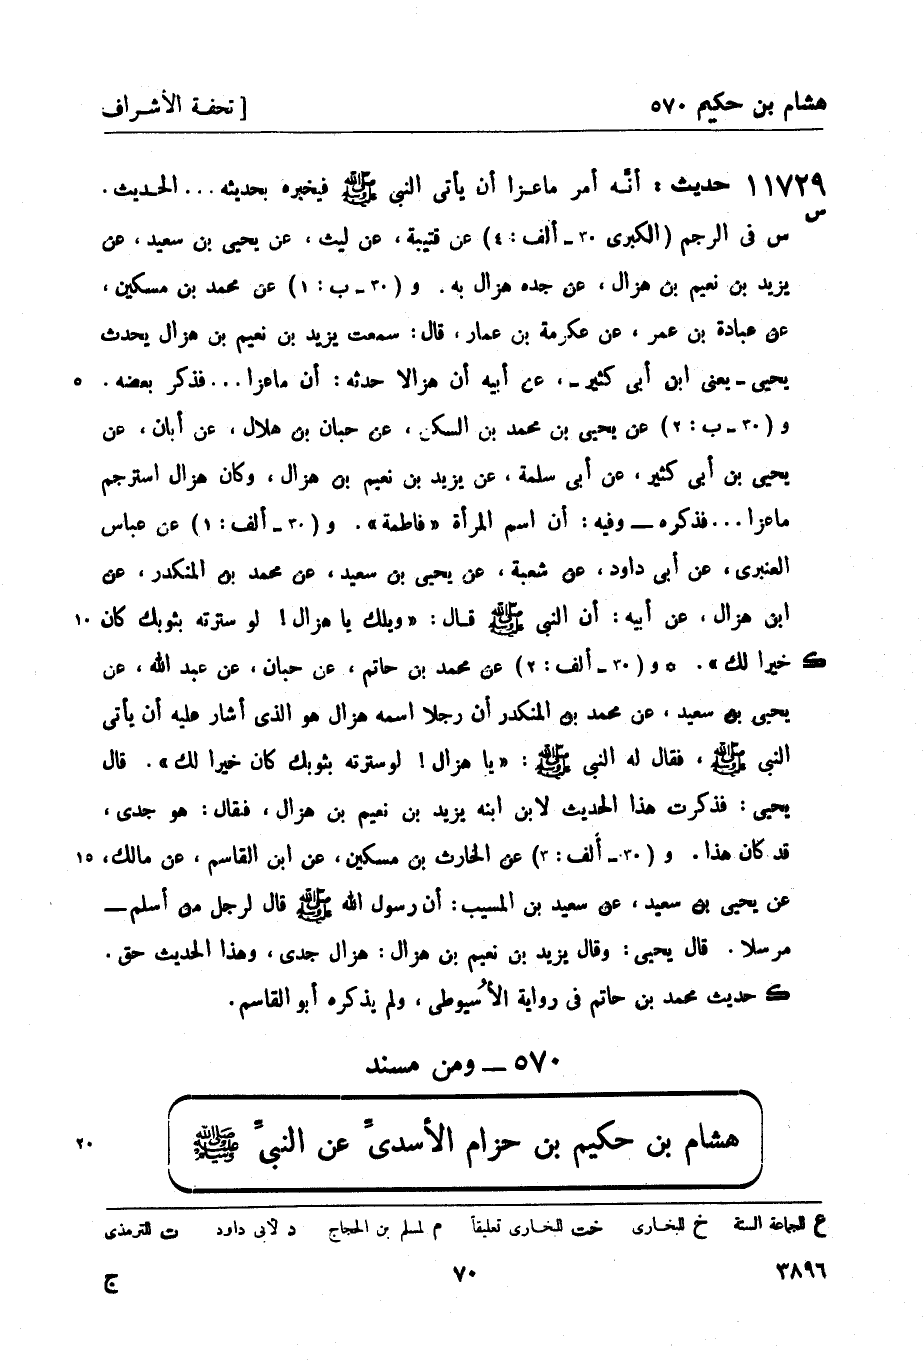 هشام بن حكيم ٥٧٠ [ تحفة الأشراف
١١٧٢٩ حديث : أنَّه أمر ماعزا أن يأتى النبي ﷺ فيخبره بحديثه ... الحديث .
س
س فى الرجم (الكبرى ٣٠ ـ ألف : ٤) عن قتيبة ، عن ليث ، عن يحيى بن سعيد ، عن
يزيد بن نعيم بن هزال ، عن جده هزال به . و (٣٠ ـ ب : ١) عن محمد بن مسكين ،
عن عبادة بن عمر ، عن عكرمة بن عمار ، قال : سمعت يزيد بن نعيم بن هزال يحدث
يحيى ـ يعنى ابن أبى كثير ـ ، عن أبيه أن هزالا حدثه : أن ماعزا ... فذكر بعضه . ٥
و (٣٠ ـ ب : ٢) عن يحيى بن محمد بن السكن ، عن حبان بن هلال ، عن أبان ، عن
يحيى بن أبى كثير ، عن أبى سلمة ، عن يزيد بن نعيم بن هزال ، وكان هزال استرجم
ماعزا ... فذكره ــ وفيه : أن اسم المرأة «فاطمة» . و (٣٠ ـ ألف : ١) عن عباس
العنبرى ، عن أبى داود ، عن شعبة ، عن يحيى بن سعيد ، عن محمد بن المنكدر ، عن
ابن هزال ، عن أبيه : أن النبى ﷺ قال : «ويلك يا هزال ! لو سترته بثوبك كان ١٠
ك خيرا لك» . * و (٣٠ ـ ألف : ٢) عن محمد بن حاتم ، عن حبان ، عن عبد الله ، عن
يحيى بن سعيد ، عن محمد بن المنكدر أن رجلا اسمه هزال هو الذى أشار عليه أن يأتى
النبى ﷺ ، فقال له النبى ﷺ : «يا هزال ! لوسترته بثوبك كان خيرا لك» . قال
يحيى : فذكرت هذا الحديث لابن ابنه يزيد بن نعيم بن هزال ، فقال : هو جدى ،
قد كان هذا . و (٣٠ ـ ألف : ٣) عن الحارث بن مسكين ، عن ابن القاسم ، عن مالك ، ١٥
عن يحيى بن سعيد ، عن سعيد بن المسيب : أن رسول الله ﷺ قال لرجل من أسلم ــ
مرسلا . قال يحيى : وقال يزيد بن نعيم بن هزال : هزال جدى ، وهذا الحديث حق .
ك حديث محمد بن حاتم فى رواية الأُسيوطى ، ولم يذكره أبو القاسم .
٥٧٠ ــ ومن مسند
هشام بن حكيم بن حزام الأسدىّ عن النبىّ ﷺ ٢٠
ع للجماعة الستة خ للبخارى خت للبخارى تعليقاً م لمسلم بن الحجاج د لأبى داود ت للترمذى
٣٨٩٦ ٧٠ ج